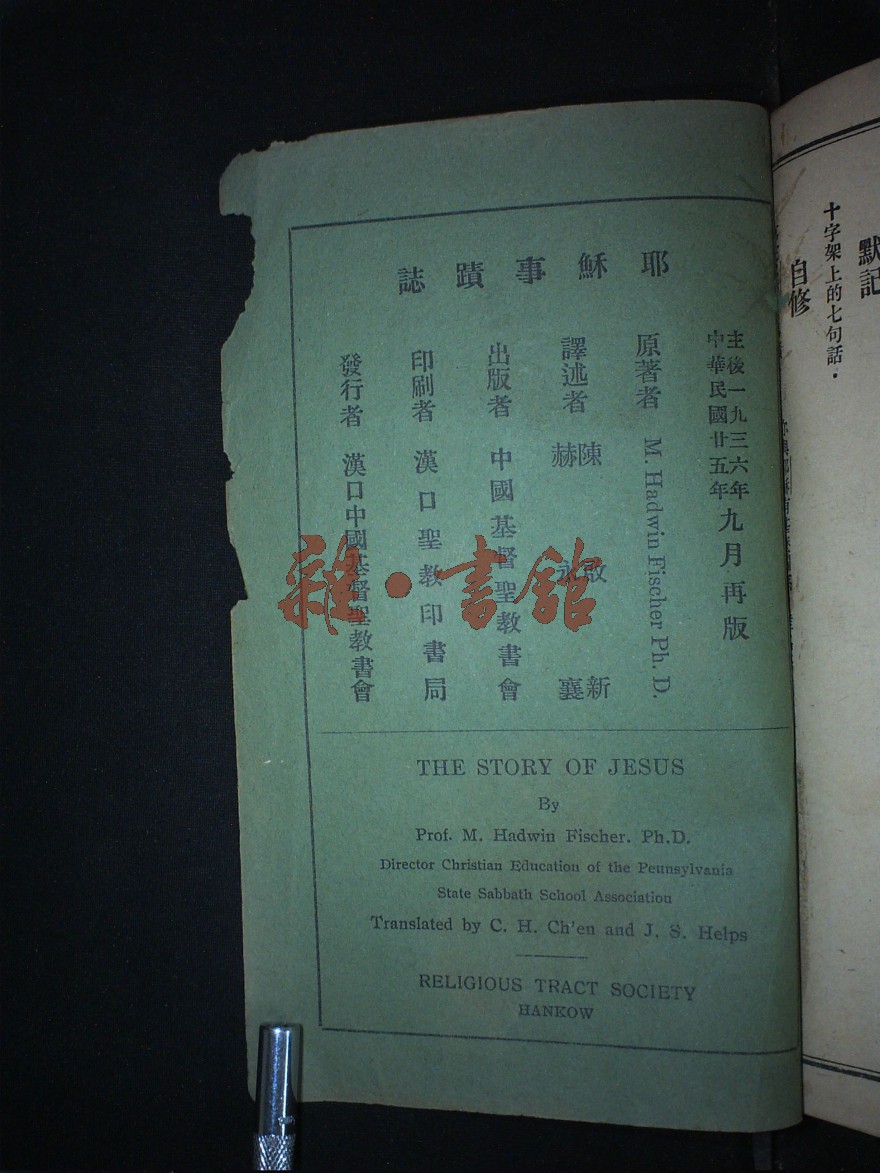 默記
十字架上的七句話．
自修
耶穌事蹟誌
主後一九三六年
中華民國廿五年
九月再版
原著者 M. Hadwin Fischer Ph. D.
譯述者 陳啟新
赫永襄
出版者 中國基督聖教書會
印刷者 漢口聖教印書局
發行者 漢口中國基督聖教書會
雜·書館
THE STORY OF JESUS
By
Prof. M. Hadwin Fischer. Ph.D.
Director Christian Education of the Peunsylvania
State Sabbath School Association
Translated by C. H. Ch'en and J. S. Helps
RELIGIOUS TRACT SOCIETY
HANKOW